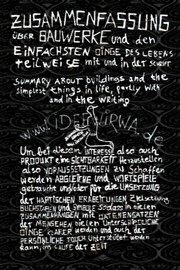 ZUSAMMENFASSUNG
ÜBER BAUWERKE und den
EINFACHSTEN DINGE DES LEBENS
teilweise mit und in der SCHRIFT
SUMMARY ABOUT buildings and the
simplest things in life, partly with
and in the writing
Um bei diesem INTERESSE also auch
PRODUKT eine SICHTBARKEIT Herzustellen
also VORAUSSETZUNGEN zu Schaffen
werden ABGLEICHE und WORTSPIELE
gebraucht und/oder für die UMSETZUNG
der HAPTISCHEN
BUCHSTABEN und SYMBOLE sodass in diesen
ZUSAMMENHÄNGEN mit DATENENSÄTZEN
der MENSCHEN viele UNTERSCHIEDLICHE
DINGE erfahren werden und auch der
PERSÖNLICHE TOUCH Unterstützt werden
kann, im LAUFE DER ZEIT